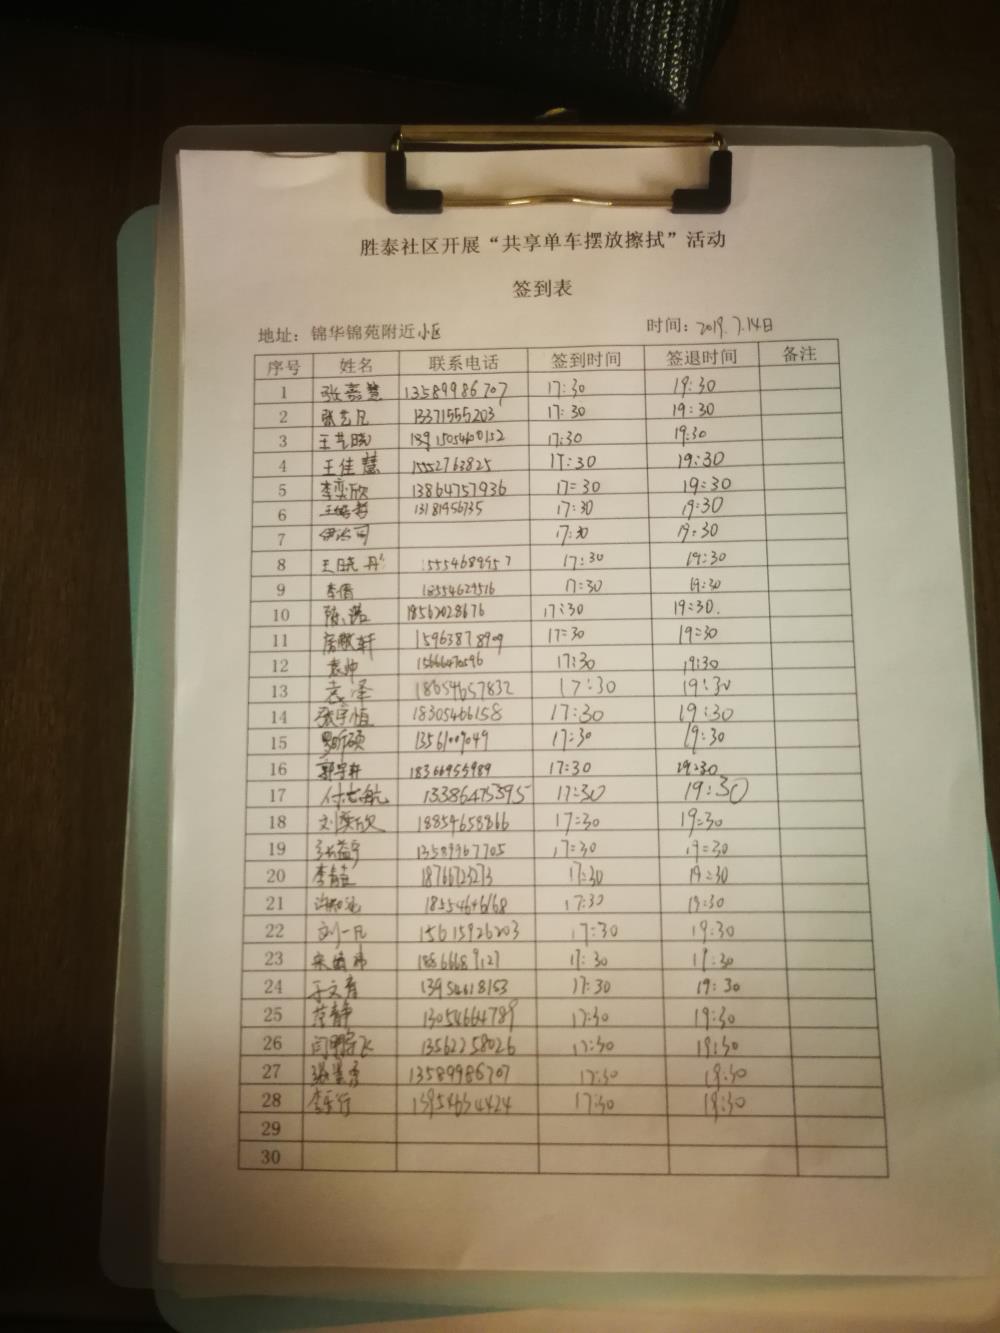 胜泰社区开展“共享单车摆放擦拭”活动
签到表
地址：锦华锦苑附近小区 时间：2019.7.14日
序号 姓名 联系电话 签到时间 签退时间 备注
1 张嘉慧 13589986707 17:30 19:30
2 张艺凡 13371555203 17:30 19:30
3 王艺晓 17:30 19:30
4 王佳慧 15552763825 17:30 19:30
5 李奕欣 13864757936 17:30 19:30
6 13181956735 17:30 19:30
7 17:30 19:30
8 王晓丹 17:30 19:30
9 李倩 18554629516 17:30 19:30
10 18562028676 17:30 19:30.
11 15963878909 17:30 19:30
12 袁帅 15666470596 17:30 19:30
13 袁泽 18654657832 17:30 19:30
14 张宇恒 18305466158 17:30 19:30
15 17:30 19:30
16 郭宇轩 18366955989 17:30 19:30
17 13386475395 17:30 19:30
18 刘奕欣 18854658866 17:30 19:30
19 张益宁 13589967705 17:30 19:30
20 18766723273 17:30 19:30
21 17:30 19:30
22 刘一凡 15615926203 17:30 19:30
23 17:30 19:30
24 于文睿 13954618153 17:30 19:30
25 范静 13054664789 17:30 19:30
26 13562258026 17:30 19:30
27 13589986707 17:30 19:30
28 17:30 19:30
29
30